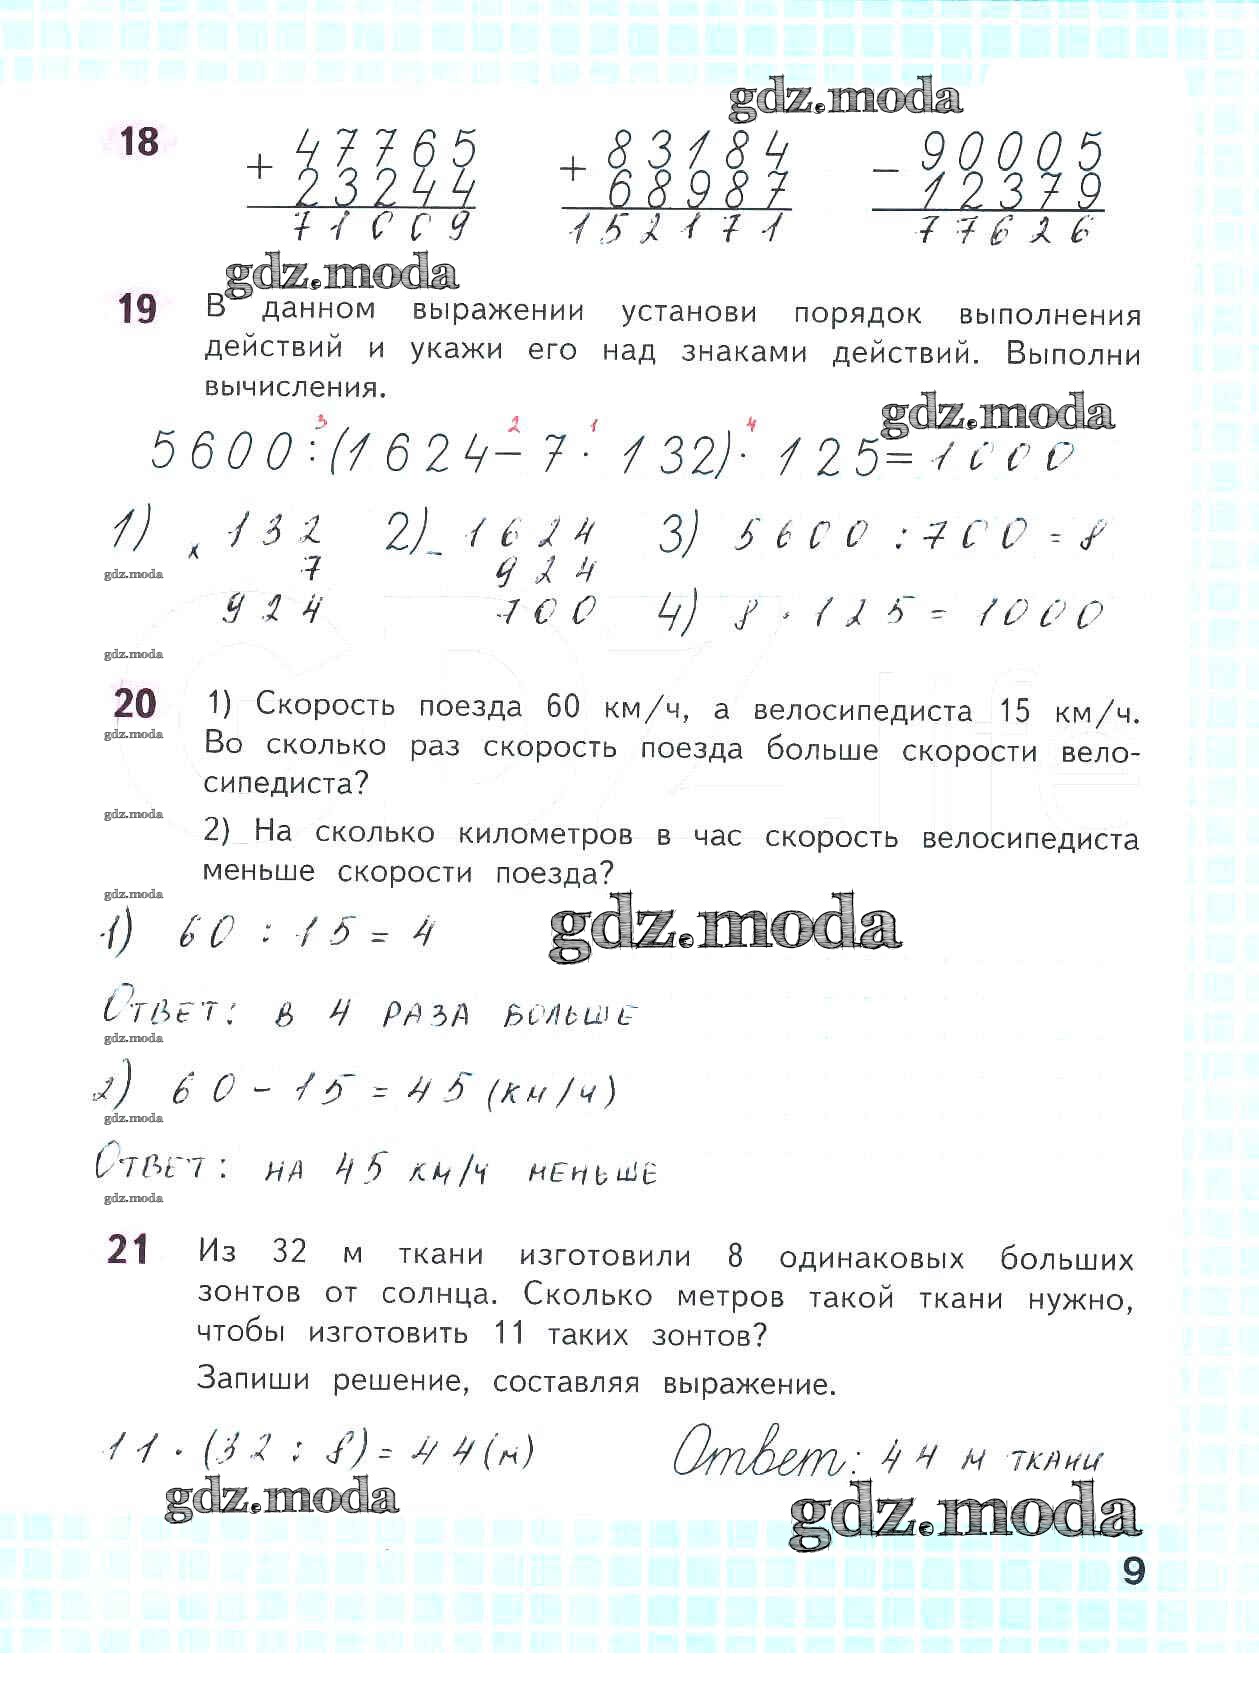 gdz.moda
18
+ 47765 + 83184 - 90005
23244 68987 12379
71009 152171 77626
gdz.moda
19 В данном выражении установи порядок выполнения
действий и укажи его над знаками действий. Выполни
вычисления.
gdz.moda
3 2 1 4
5600:(1624-7·132)·125=1000
1) × 132 2) - 1624 3) 5600:700=8
gdz.moda 7 924
924 700 4) 8·125=1000
gdz.moda
20 1) Скорость поезда 60 км/ч, а велосипедиста 15 км/ч.
gdz.moda
Во сколько раз скорость поезда больше скорости вело-
сипедиста?
gdz.moda
2) На сколько километров в час скорость велосипедиста
меньше скорости поезда?
gdz.moda
1) 60:15=4 gdz.moda
Ответ: в 4 раза больше
gdz.moda
2) 60-15=45 (км/ч)
gdz.moda
Ответ: на 45 км/ч меньше
gdz.moda
21 Из 32 м ткани изготовили 8 одинаковых больших
зонтов от солнца. Сколько метров такой ткани нужно,
чтобы изготовить 11 таких зонтов?
Запиши решение, составляя выражение.
11·(32:8)=44(м) Ответ: 44 м ткани
gdz.moda gdz.moda
9